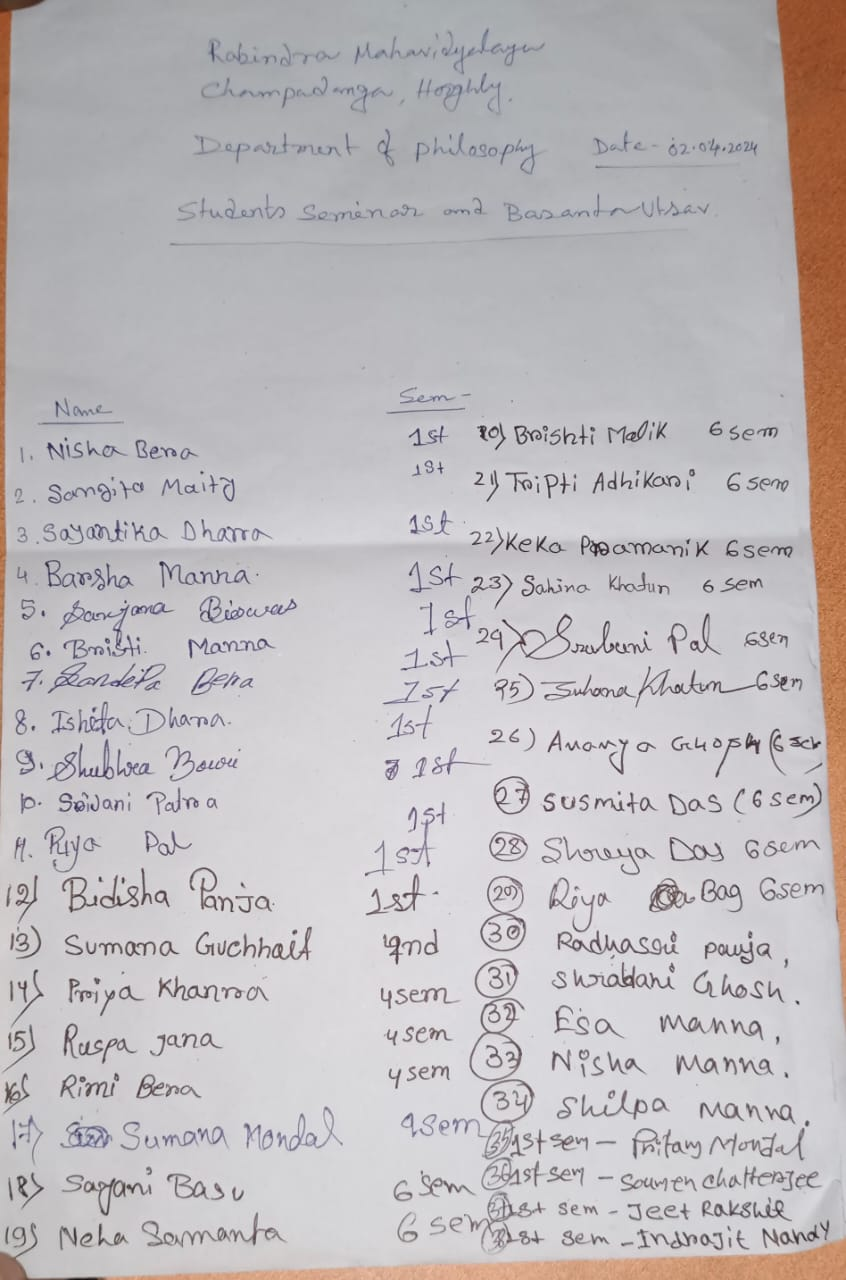 Rabindra Mahavidyalaya
Champadanga, Hooghly.
Department of philosophy Date - 02.04.2024
Students Seminar and Basanta Utsav.
Name Sem -
1. Nisha Bera 1st
2. Sangita Maity 1st
3. Sayantika Dharra 1st.
4. Barsha Manna. 1st
5. Sanjana Biswas 1st
6. Bristi Manna 1st
7. Sandipa Bera 1st
8. Ishita Dhara. 1st
9. Shubhra Bouri 1st
10. Srivani Patra 1st
11. Puja Pal 1st
12) Bidisha Panja 1st.
13) Sumana Guchhait 4nd
14) Priya Khanra 4sem
15) Ruspa Jana 4sem
16) Rimi Bera 4sem
17) Sumana Mondal 4sem
18) Sayani Basu 6 sem
19) Neha Samanta 6 sem
20) Brishti Malik 6 sem
21) Tripti Adhikari 6 sem
22) Keka Pramanik 6 sem
23) Sahina Khatun 6 sem
24) Srabani Pal 6sem
25) Suhana Khatun 6sem
26) Ananya Ghosh (6 sem
27 Susmita Das (6 sem)
28 Shreya Das 6sem
29 Riya Bag 6sem
30 Radhasri panja,
31 Shrabani Ghosh.
32 Esa Manna,
33 Nisha Manna.
34 Shilpa Manna.
35 1st sem - Pritam Mondal
36 1st sem - Soumen Chatterjee
37 1st sem - Jeet Rakshit
38 1st sem - Indrajit Nandy